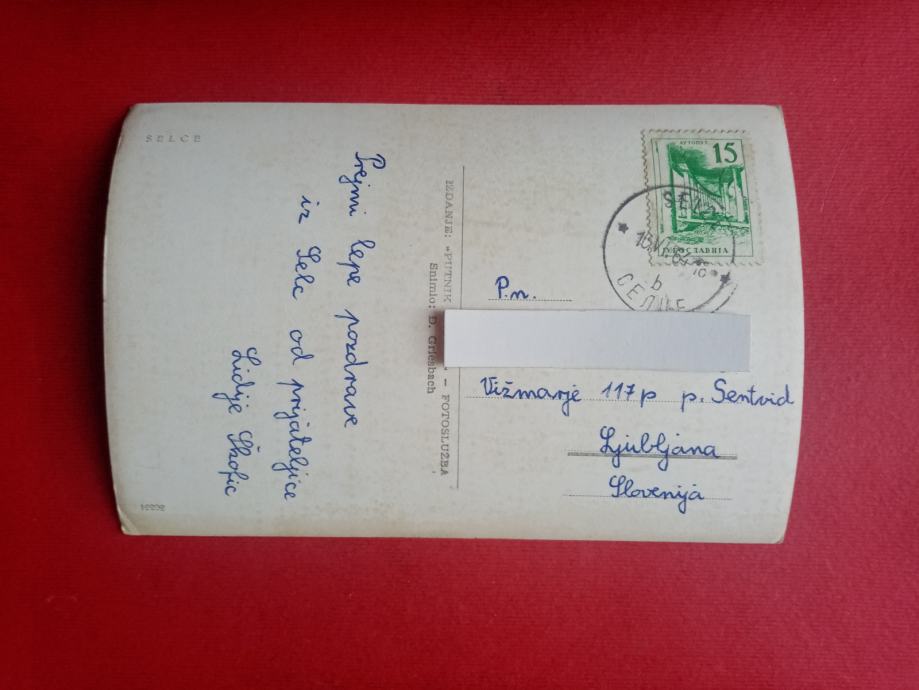 SELCE
Prejmi lepe pozdrave
iz Selc od prijateljice
Lidije Škofic
IZDANJE: »PUTNIK
— FOTOSLUŽBA
Snimio: D. Griesbach
15
ЈУГОСЛАВИЈА
СЕЛЦЕ
b
P.n.
Vižmarje 117p p. Šentvid
Ljubljana
Slovenija